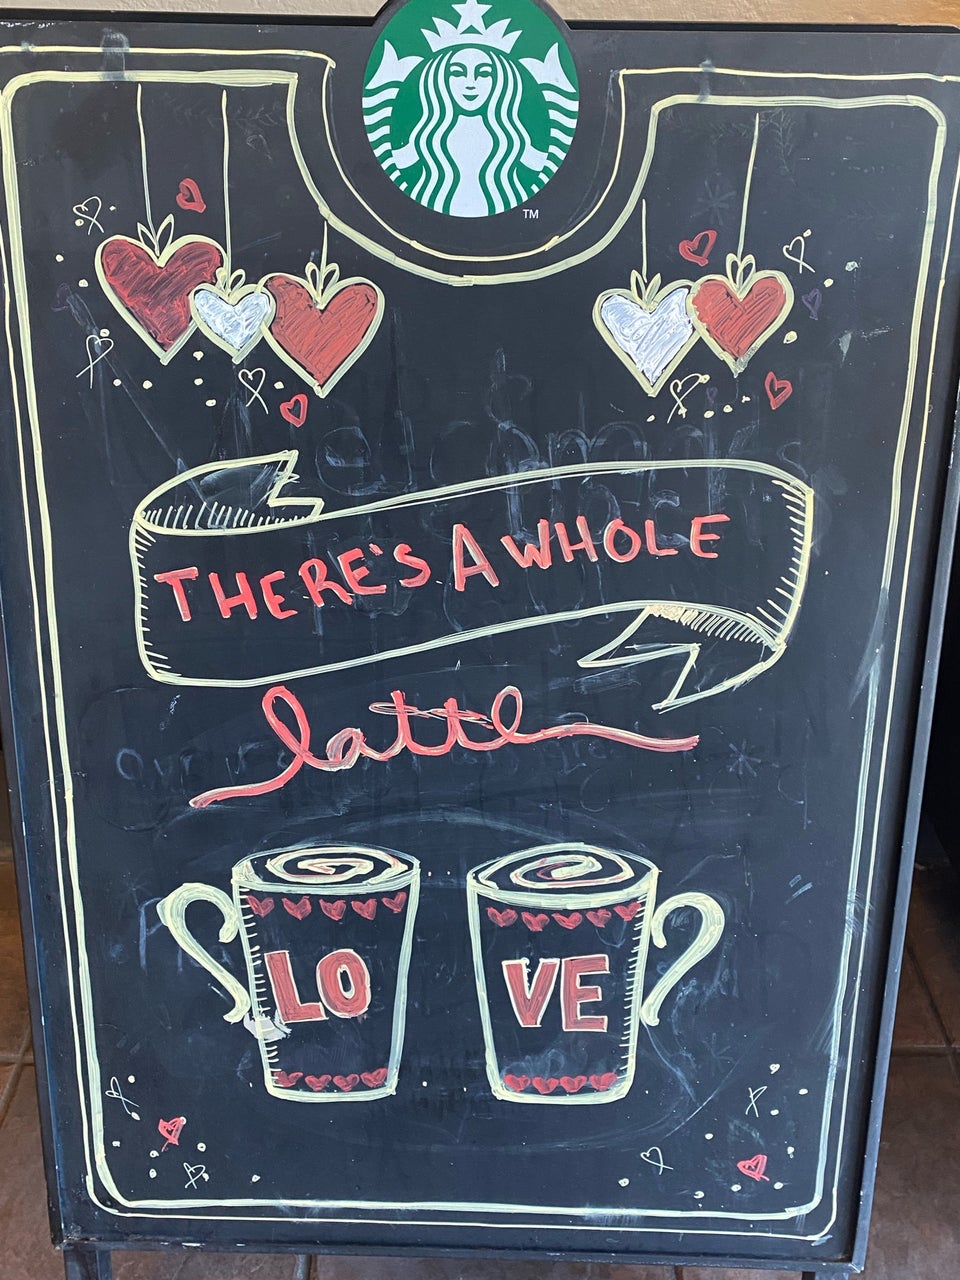 TM
THERE'S A WHOLE
latte
LO VE